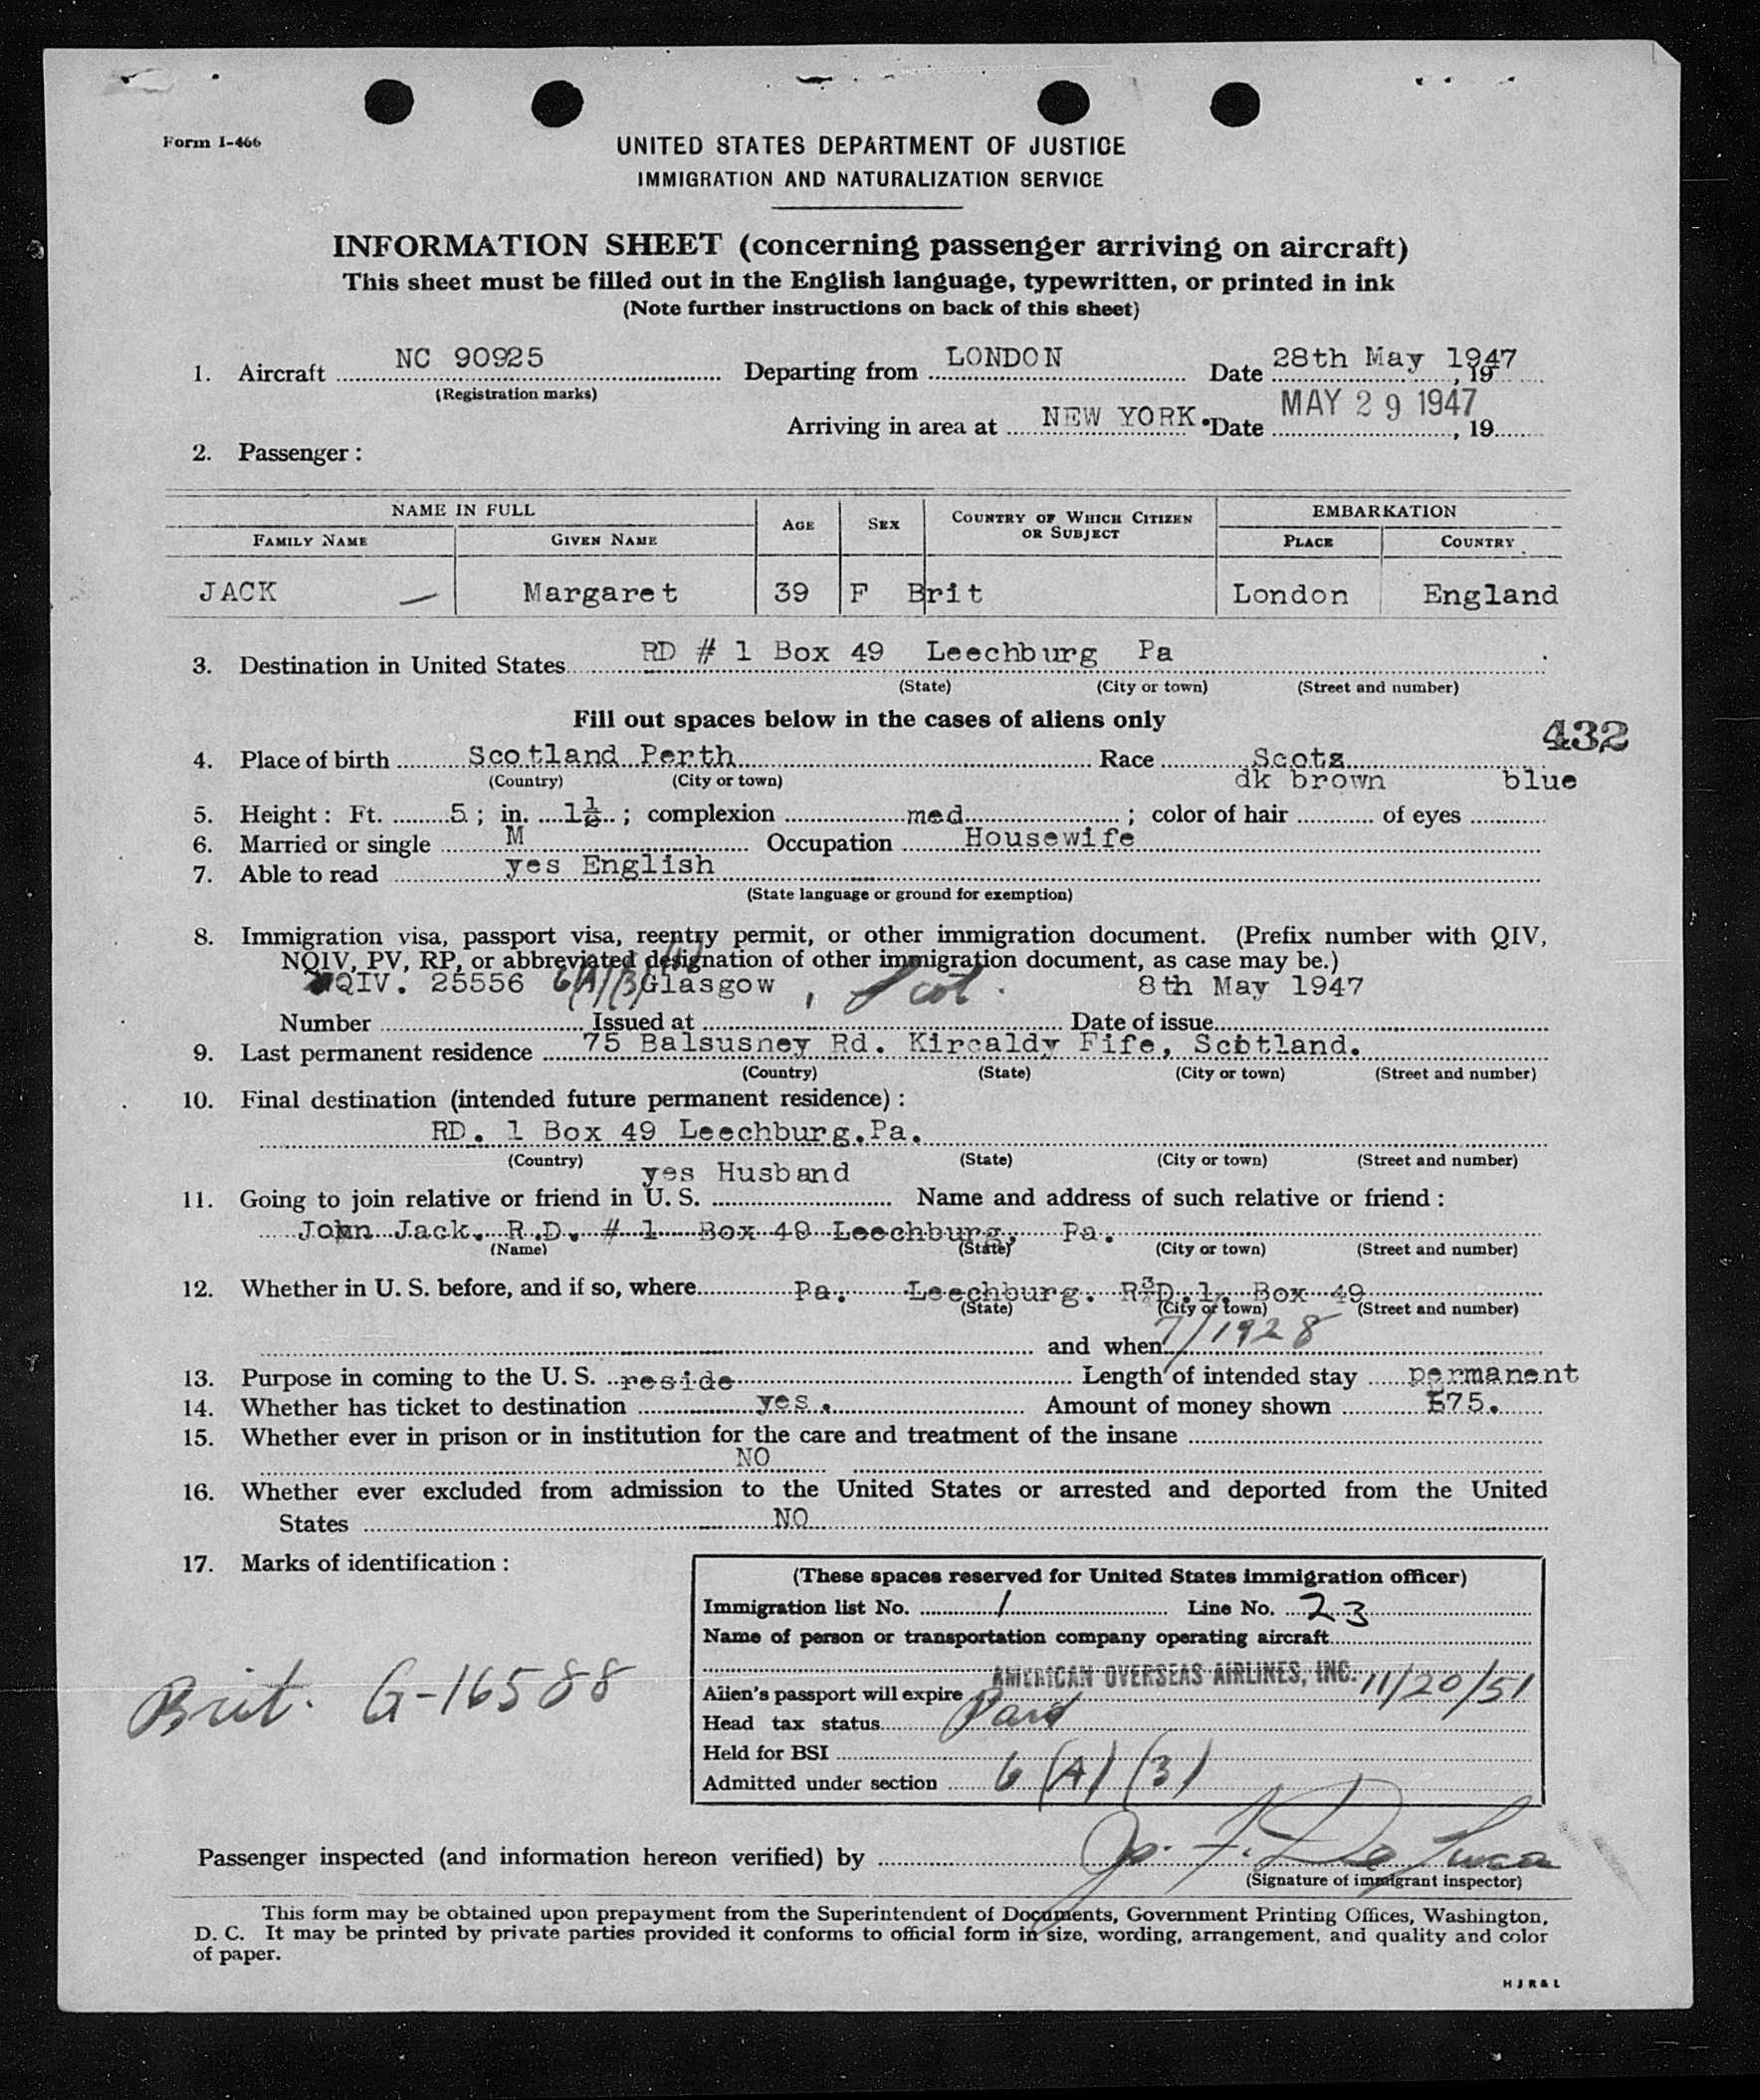 Form I-466
UNITED STATES DEPARTMENT OF JUSTICE
IMMIGRATION AND NATURALIZATION SERVICE
INFORMATION SHEET (concerning passenger arriving on aircraft)
This sheet must be filled out in the English language, typewritten, or printed in ink
(Note further instructions on back of this sheet)
1. Aircraft NC 90925 Departing from LONDON Date 28th May 1947, 19
(Registration marks)
Arriving in area at NEW YORK. Date MAY 29 1947, 19
2. Passenger:
NAME IN FULL AGE SEX COUNTRY OF WHICH CITIZEN OR SUBJECT EMBARKATION
FAMILY NAME GIVEN NAME PLACE COUNTRY
JACK — Margaret 39 F Brit London England
3. Destination in United States RD # 1 Box 49 Leechburg Pa
(State) (City or town) (Street and number)
Fill out spaces below in the cases of aliens only
432
4. Place of birth Scotland Perth Race Scots
(Country) (City or town) dk brown blue
5. Height: Ft. 5; in. 1½; complexion med; color of hair of eyes
6. Married or single M Occupation Housewife
7. Able to read yes English
(State language or ground for exemption)
8. Immigration visa, passport visa, reentry permit, or other immigration document. (Prefix number with QIV,
NQIV, PV, RP, or abbreviated designation of other immigration document, as case may be.)
QIV. 25556 6(A)(3) Glasgow, Scot. 8th May 1947
Number Issued at Date of issue
9. Last permanent residence 75 Balsusney Rd. Kircaldy Fife, Scotland.
(Country) (State) (City or town) (Street and number)
10. Final destination (intended future permanent residence):
RD. 1 Box 49 Leechburg.Pa.
(Country) (State) (City or town) (Street and number)
yes Husband
11. Going to join relative or friend in U. S. Name and address of such relative or friend:
John Jack. R.D. # 1 Box 49 Leechburg, Pa.
(Name) (State) (City or town) (Street and number)
12. Whether in U. S. before, and if so, where Pa. Leechburg. R.D.1. Box 49
(State) (City or town) (Street and number)
and when 7/1928
13. Purpose in coming to the U. S. reside Length of intended stay permanent
14. Whether has ticket to destination yes. Amount of money shown 75.
15. Whether ever in prison or in institution for the care and treatment of the insane
NO
16. Whether ever excluded from admission to the United States or arrested and deported from the United
States NO
17. Marks of identification:
(These spaces reserved for United States immigration officer)
Immigration list No. 1 Line No. 23
Name of person or transportation company operating aircraft
AMERICAN OVERSEAS AIRLINES, INC.
Alien's passport will expire 11/20/51
Brit. G-16588
Head tax status Paid
Held for BSI
Admitted under section 6(A)(3)
Passenger inspected (and information hereon verified) by Jo. F. De Luca
(Signature of immigrant inspector)
This form may be obtained upon prepayment from the Superintendent of Documents, Government Printing Offices, Washington,
D. C. It may be printed by private parties provided it conforms to official form in size, wording, arrangement, and quality and color
of paper.
H J R & L